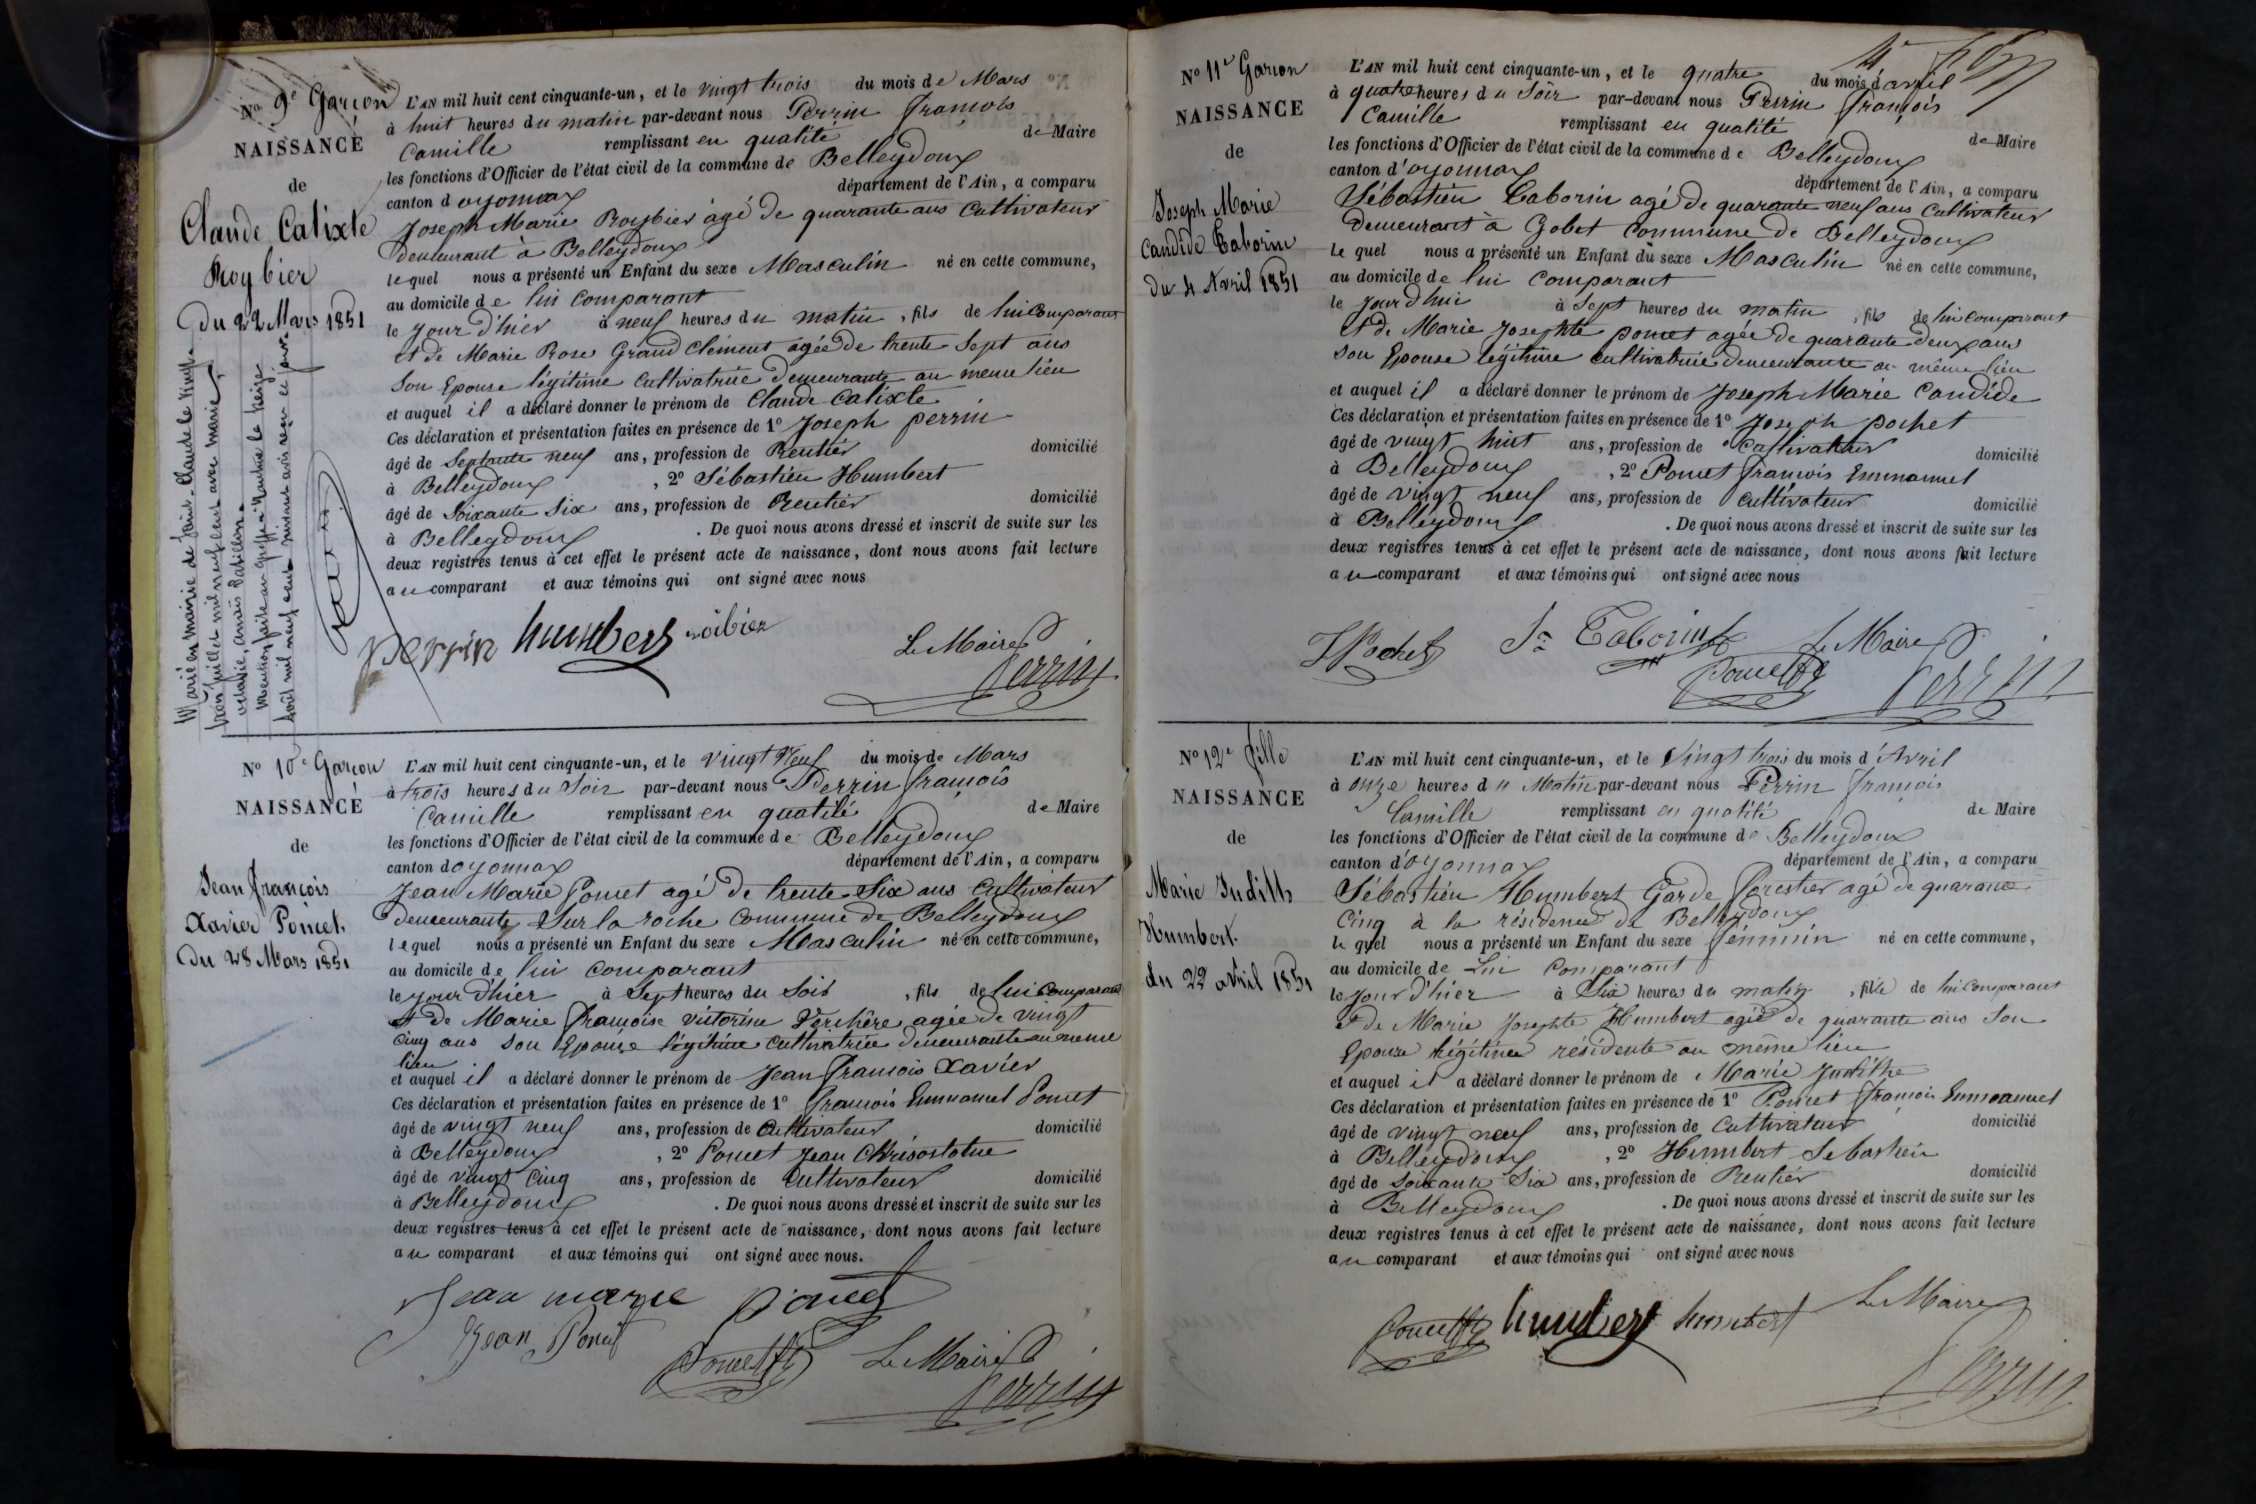 No 9e Garcon
NAISSANCE
de
Claude Calixte
Roybier
Du 22 Mars 1851
L'AN mil huit cent cinquante-un, et le vingt trois du mois de Mars
à huit heures du matin par-devant nous Perrin françois
Camille remplissant en qualité de Maire
les fonctions d'Officier de l'état civil de la commune de Belleydoux
canton d oyonnax département de l'Ain, a comparu
Joseph Marie Roybier âgé de quarante ans Cultivateur
demeurant à Belleydoux
lequel nous a présenté un Enfant du sexe Masculin né en cette commune,
au domicile de lui comparant
le jour d'hier à neuf heures du matin, fils de lui comparant
et de Marie Rose Grand Clément âgée de trente sept ans
son Epouse légitime cultivatrice demeurante au même lieu
et auquel il a déclaré donner le prénom de Claude Calixte
Ces déclaration et présentation faites en présence de 1o Joseph perrin
âgé de Septante neuf ans, profession de Rentier domicilié
à Belleydoux, 2o Sébastien Humbert
âgé de Soixante Six ans, profession de Rentier domicilié
à Belleydoux. De quoi nous avons dressé et inscrit de suite sur les
deux registres tenus à cet effet le présent acte de naissance, dont nous avons fait lecture
au comparant et aux témoins qui ont signé avec nous
perrin humbert roibier Le Maire
Perrin
No 10e Garcon
NAISSANCE
de
Jean françois
Xavier Poncet
Du 28 Mars 1851
L'AN mil huit cent cinquante-un, et le vingt Neuf du mois de Mars
à trois heures du Soir par-devant nous Perrin françois
Camille remplissant en qualité de Maire
les fonctions d'Officier de l'état civil de la commune de Belleydoux
canton d oyonnax département de l'Ain, a comparu
Jean Marie Poncet agé de trente Six ans Cultivateur
demeurante Sur la roche Commune de Belleydoux
lequel nous a présenté un Enfant du sexe Masculin né en cette commune,
au domicile de lui comparant
le jour d'hier à Sept heures du Soir, fils de lui comparant
et de Marie françoise victorine Verchère agée de vingt
cinq ans son Epouse légitime cultivatrice demeurante au même
lieu
et auquel il a déclaré donner le prénom de Jean françois Xavier
Ces déclaration et présentation faites en présence de 1o françois Emmanuel Poncet
âgé de vingt neuf ans, profession de Cultivateur domicilié
à Belleydoux, 2o Poncet Jean Chrisostotme
âgé de vingt Cinq ans, profession de Cultivateur domicilié
à Belleydoux. De quoi nous avons dressé et inscrit de suite sur les
deux registres tenus à cet effet le présent acte de naissance, dont nous avons fait lecture
au comparant et aux témoins qui ont signé avec nous.
Jean marie poncet
Jean Poncet
Poncet Le Maire
Perrin
No 11e Garcon
NAISSANCE
de
Joseph Marie
Candide Taborin
Du 4 Avril 1851
L'AN mil huit cent cinquante-un, et le quatre du mois d'avril
à quatre heures du Soir par-devant nous Perrin françois
Camille remplissant en qualité de Maire
les fonctions d'Officier de l'état civil de la commune de Belleydoux
canton d'oyonnax département de l'Ain, a comparu
Sébastien Taborin agé de quarante neuf ans Cultivateur
demeurant à Gobet Commune de Belleydoux
Le quel nous a présenté un Enfant du sexe Masculin né en cette commune,
au domicile de lui comparant
le jourd'hui à Sept heures du matin, fils de lui comparant
et de Marie Josephte poncet agée de quarante deux ans
son Epouse légitime cultivatrice demeurante au même lieu
et auquel il a déclaré donner le prénom de Joseph Marie Candide
Ces déclaration et présentation faites en présence de 1o Joseph pochet
âgé de vingt huit ans, profession de Cultivateur domicilié
à Belleydoux, 2o Poncet françois Emmanuel
âgé de vingt neuf ans, profession de Cultivateur domicilié
à Belleydoux. De quoi nous avons dressé et inscrit de suite sur les
deux registres tenus à cet effet le présent acte de naissance, dont nous avons fait lecture
au comparant et aux témoins qui ont signé avec nous
J Pochet Sn Taborin Le Maire
Poncet fe Perrin
No 12e fille
NAISSANCE
de
Marie Judith
Humbert
du 22 avril 1851
L'AN mil huit cent cinquante-un, et le Vingt trois du mois d'Avril
à onze heures du Matin par-devant nous Perrin françois
Camille remplissant en qualité de Maire
les fonctions d'Officier de l'état civil de la commune de Belleydoux
canton d'oyonnax département de l'Ain, a comparu
Sébastien Humbert Garde forestier agé de quarante
Cinq à la résidence de Belleydoux
le quel nous a présenté un Enfant du sexe féminin né en cette commune,
au domicile de Lui Comparant
le jour d'hier à Six heures du matin, fille de lui comparant
et de Marie Josephte Humbert agée de quarante ans Son
Epouse légitime résidente au même lieu
et auquel il a déclaré donner le prénom de Marie Judithe
Ces déclaration et présentation faites en présence de 1o Poncet françois Emmanuel
âgé de vingt neuf ans, profession de Cultivateur domicilié
à Belleydoux, 2o Humbert Sebastien
âgé de soixante Six ans, profession de Rentier domicilié
à Belleydoux. De quoi nous avons dressé et inscrit de suite sur les
deux registres tenus à cet effet le présent acte de naissance, dont nous avons fait lecture
au comparant et aux témoins qui ont signé avec nous
Poncet fe humbert humbert Le Maire
Perrin